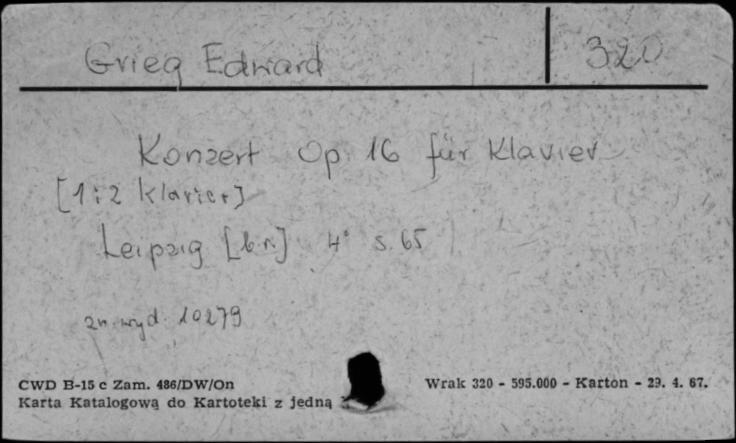 Grieg Edward 320
Konzert Op. 16 für Klavier
[1 i 2 Klavier]
Leipzig [b.r.] 4° s. 65
zn. wyd. 10279
CWD B-15 c Zam. 486/DW/On Wrak 320 - 595.000 - Karton - 29. 4. 67.
Karta Katalogową do Kartoteki z jedną